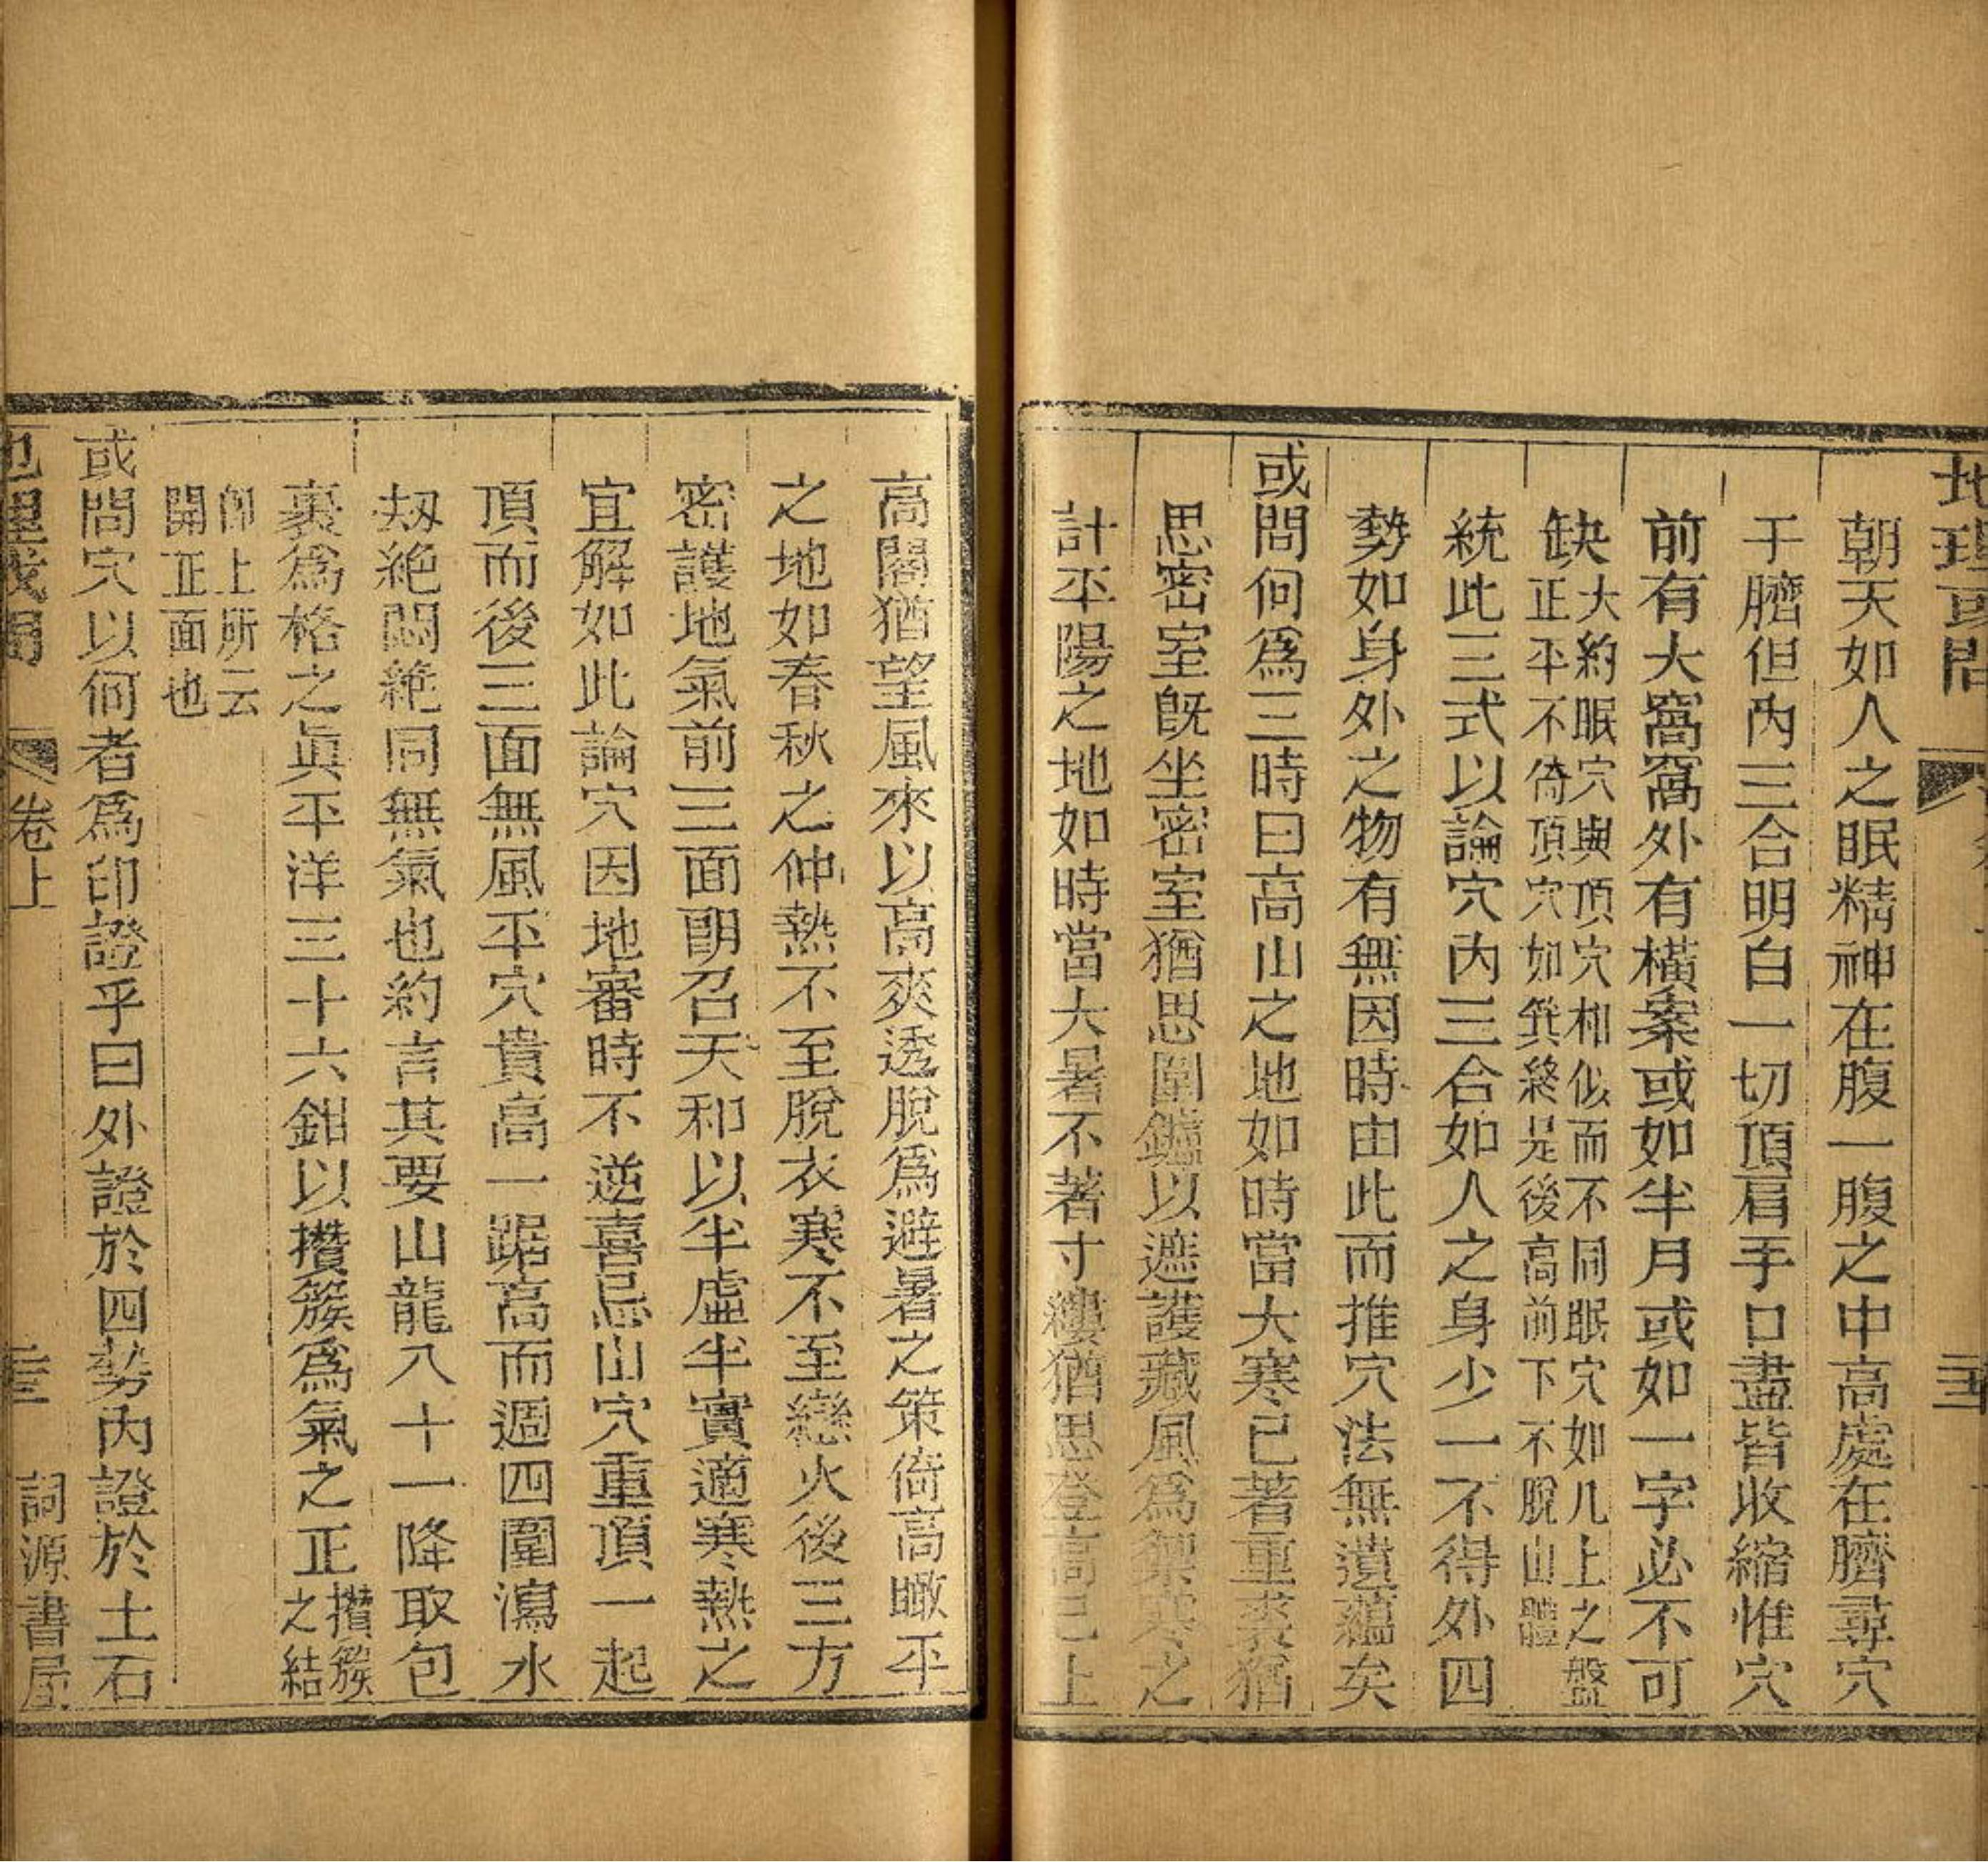 地理或問
三
朝天如人之眠精神在腹一腹之中高處在臍尋穴
于臍但內三合明白一切頂肩手口盡皆收縮惟穴
前有大窩窩外有橫案或如半月或如一字必不可
缺大約眠穴與頂穴相似而不同眠穴如几上之盤
正平不倚頂穴如箕終是後高前下不脫山體
統此三式以論穴內三合如人之身少一不得外四
勢如身外之物有無因時由此而推穴法無遺蘊矣
或問何爲三時曰高山之地如時當大寒已著重裘猶
思密室旣坐密室猶思圍鑪以遮護藏風爲禦寒之
計平陽之地如時當大暑不著寸縷猶思登高已上
高閣猶望風來以高爽透脫爲避暑之策倚高瞰平
之地如春秋之仲熱不至脫衣寒不至戀火後三方
密護地氣前三面朗召天和以半虛半實適寒熱之
宜解如此論穴因地審時不逆喜忌山穴重頂一起
頂而後三面無風平穴貴高一踞高而週四圍瀉水
刼絕闊絕同無氣也約言其要山龍八十一降取包
裹爲格之眞平洋三十六鉗以攢簇爲氣之正攢簇
之結
卽上所云
開正面也
或問穴以何者爲印證乎曰外證於四勢內證於土石
地理或問
卷上
三
詞源書屋